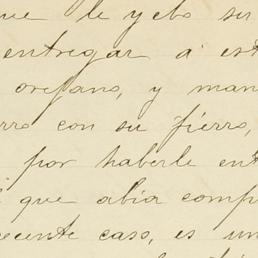 que le y cbo ser
entregar á est
orejano, y man
rro con su fierro,
por haberle ent
que abia comp
recente caso, es un